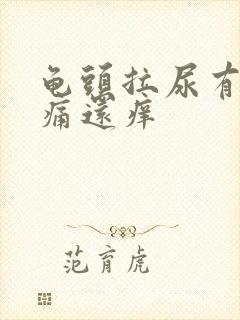 龟头拉尿有
痛還痒
范育虎